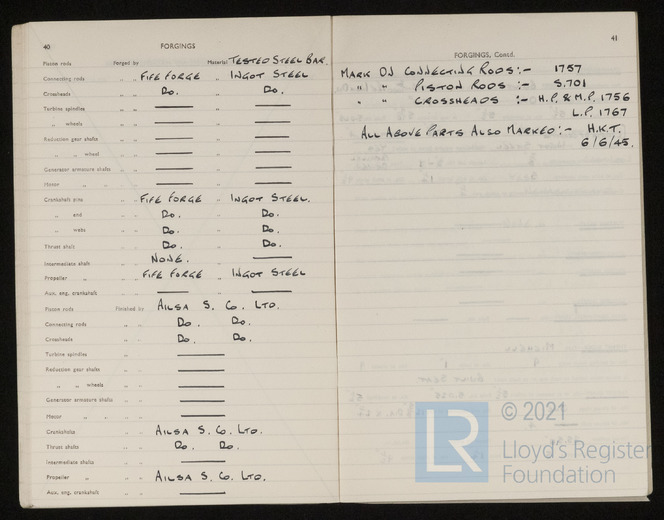 40
FORGINGS
Piston rods Forged by Material TESTED STEEL BAR
Connecting rods " " FIFE FORGE " INGOT STEEL
Crossheads " " Do. " Do.
Turbine spindles " " — " —
" wheels " " — " —
Reduction gear shafts " " — " —
" " wheel " " — " —
Generator armature shafts " " — " —
Motor " " " " — " —
Crankshaft pins " " FIFE FORGE " INGOT STEEL.
" and " " Do. " Do.
" webs " " Do. " Do.
Thrust shaft " " Do. " Do.
Intermediate shaft " " NONE. " —
Propeller " " " FIFE FORGE " INGOT STEEL
Aux. eng. crankshaft " " — " —
Piston rods Finished by AILSA S. Co. LTD.
Connecting rods " " Do. Do.
Crossheads " " Do. Do.
Turbine spindles " —
Reduction gear shafts " —
" " wheels " —
Generator armature shafts " " —
Motor " " " " —
Crankshafts " " AILSA S. Co. LTD.
Thrust shafts " " Do. Do.
Intermediate shafts " " —
Propeller " " " AILSA S. Co. LTD.
Aux. eng. crankshaft " " —
41
FORGINGS, Contd.
MARK ON CONNECTING RODS:- 1757
" " PISTON RODS :- S.701
" " CROSSHEADS :- H.P. & M.P. 1756
L.P. 1767
ALL ABOVE PARTS ALSO MARKED:- H.K.T.
6/6/45.
LR
© 2021
Lloyd's Register
Foundation